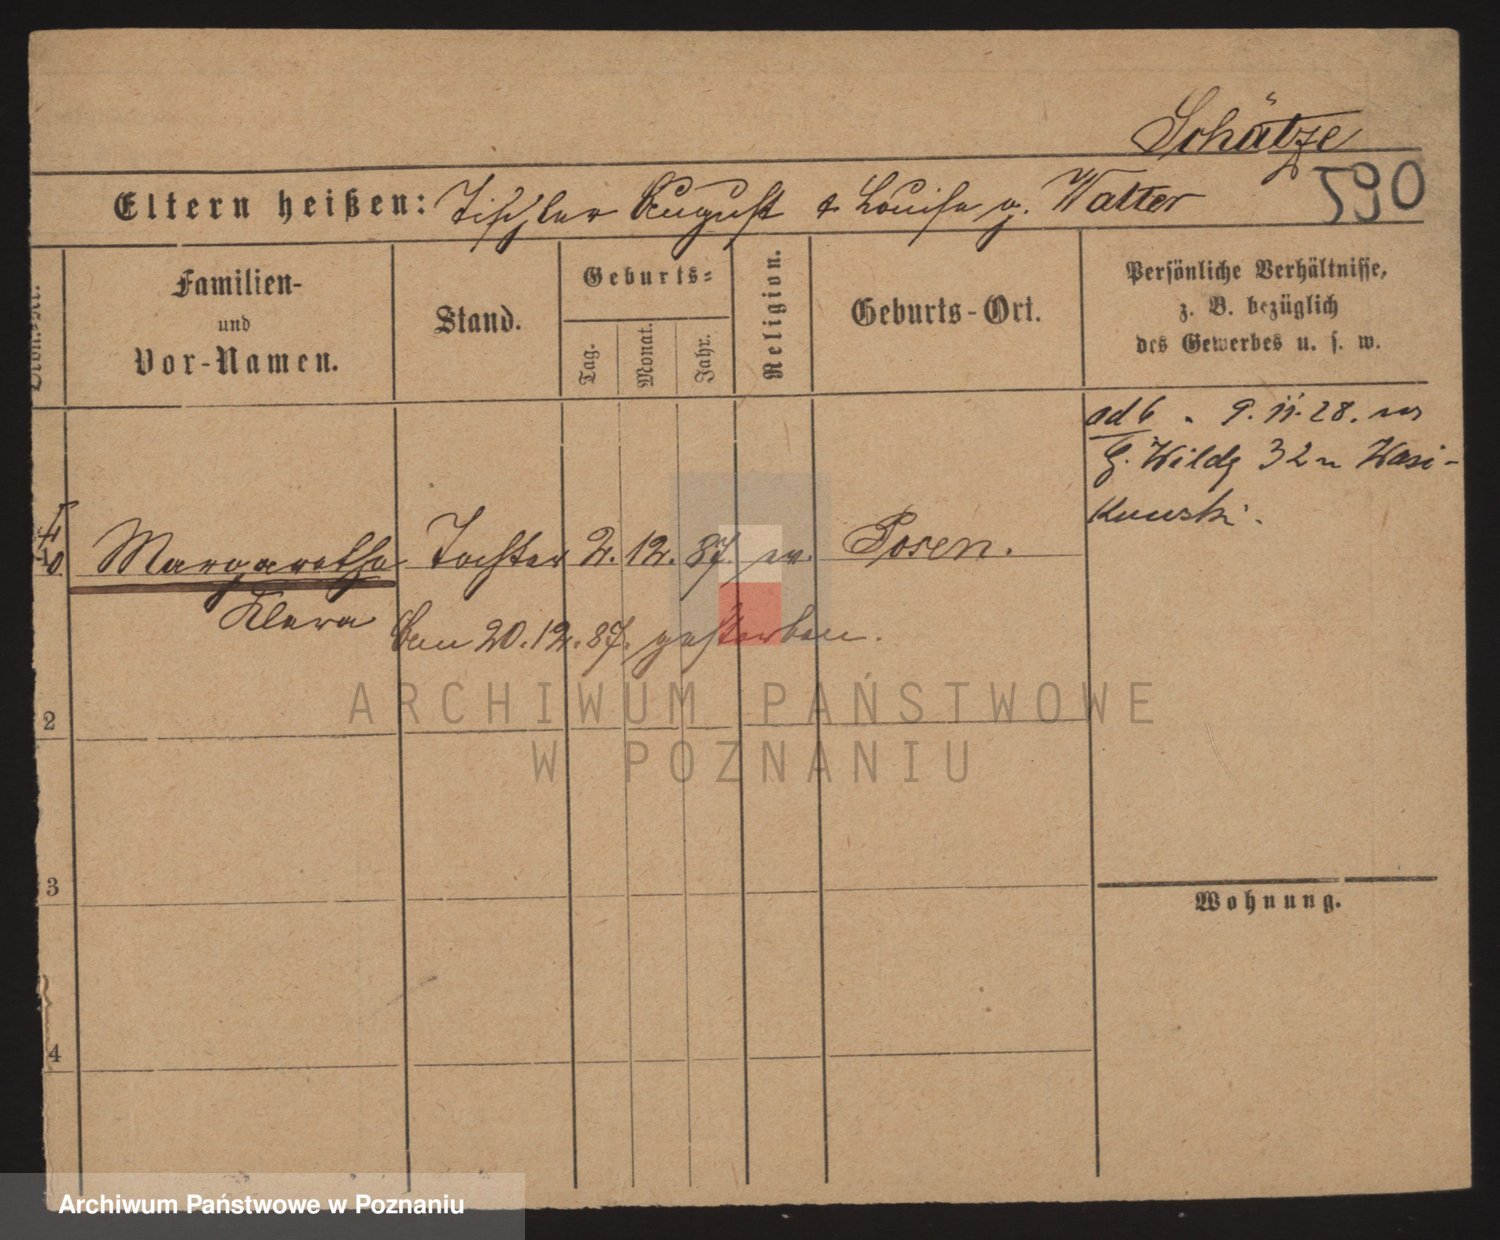 Schätze
590
Eltern heißen: Tischler August & Louise g. Walter
Familien-
und
Vor-Namen.
Stand.
Geburts-
Tag.
Monat.
Jahr.
Religion.
Geburts-Ort.
Persönliche Verhältnisse,
z. B. bezüglich
des Gewerbes u. s. w.
ad 6 . 9. 11. 28.
G. Wildg 32 Wasi-
kowski.
Margarethe Tochter 2. 12. 87. ev. Posen.
Klara
Am 20.12.87. gestorben.
ARCHIWUM PAŃSTWOWE
W POZNANIU
2
3
Wohnung.
4
Archiwum Państwowe w Poznaniu